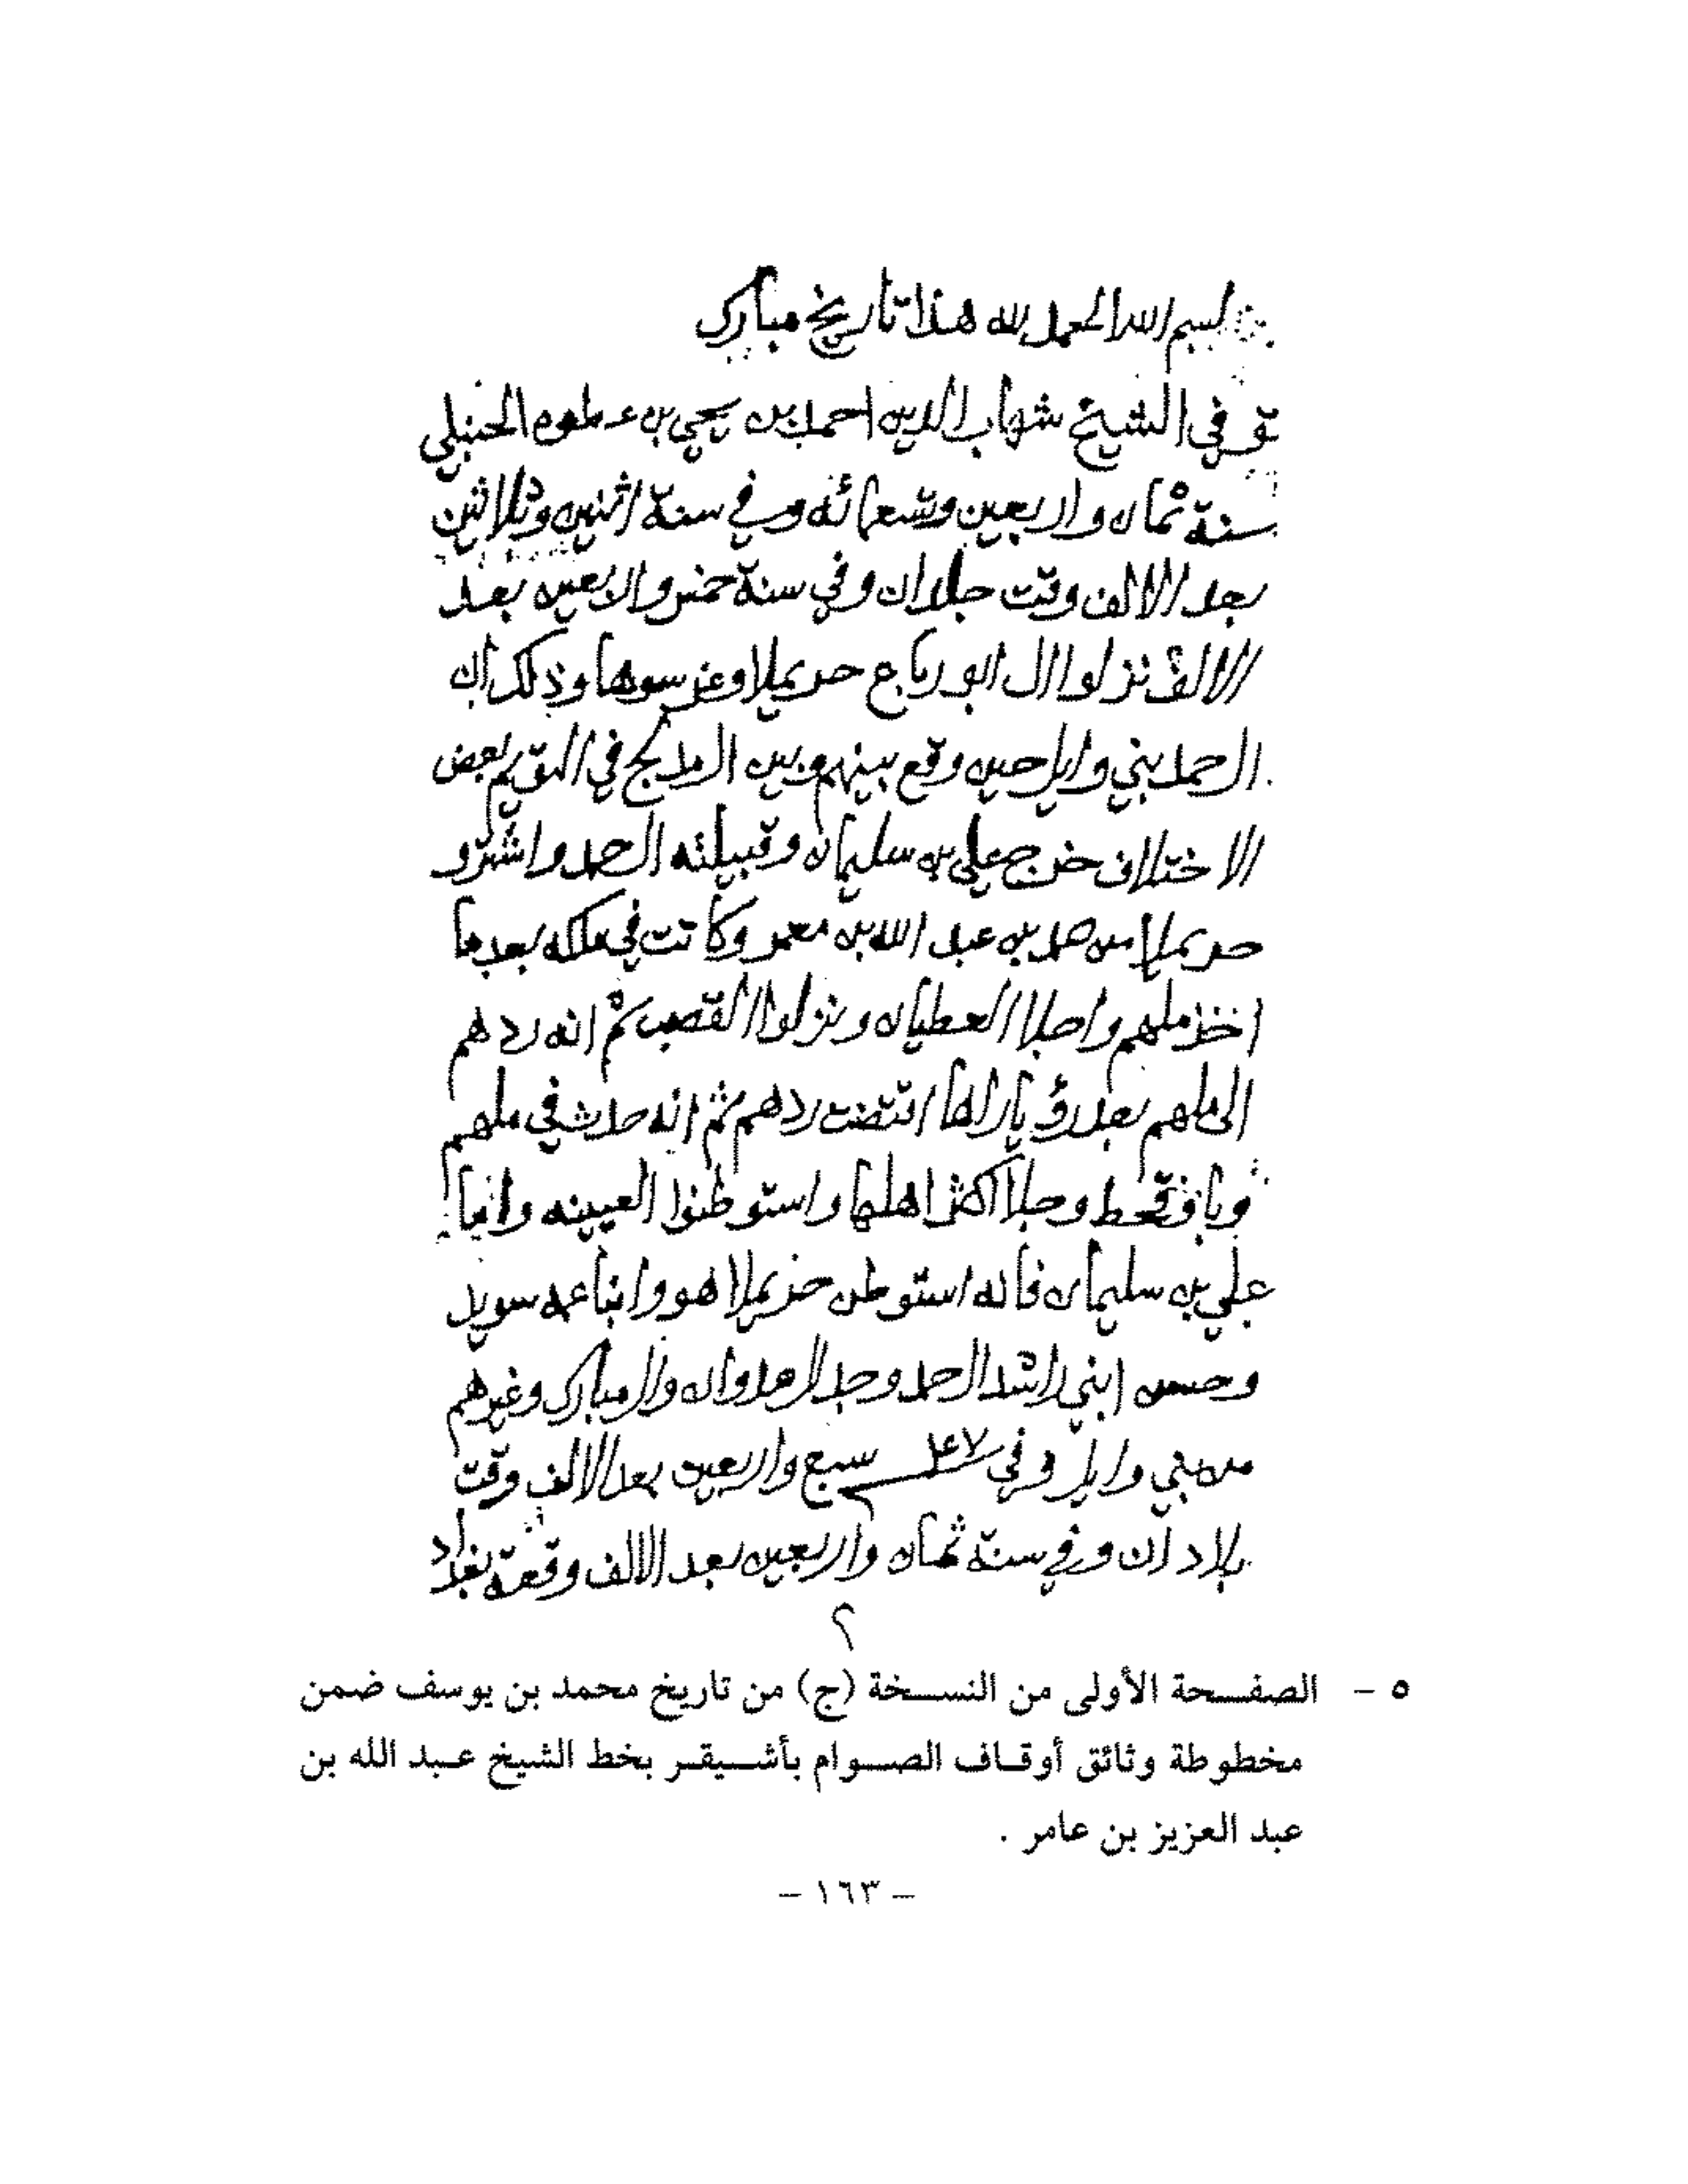 بسم الله الحمد لله هذا تاريخ مبارك
توفي الشيخ شهاب الدين احمد بن يحيى بن عطوه الحنبلي
سنة ثمان واربعين وتسعمائه وفي سنة اثنين وثلاثين
بعد الالف وقت جلدان وفي سنة خمس والاربعين بعد
الالف نزلوا ال ابو رباع حريملا وغرسوها وذلك ان
ال حمد بني وايل حين وقع بينهم وبين ال مدلج في التويم بعض
الاختلاف خرج علي بن سليمان وقبيلته ال حمد واشترو
حريملا من حمد بن عبد الله بن معمر وكانت في ملكه بعد ما
اخذ ملهم واجلا العطيان ونزلوا القصب ثم انه ردهم
الى ملهم بعد رؤيا راها اقتضت ردهم ثم انه حدث في ملهم
وبا وقحط وجلا اكثر اهلها واستوطنوا العيينه واما
علي بن سليمان فانه استوطن حريملا هو وابنا عمه سويد
وحسن ابني راشد ال حمد وجد ال عدوان وال مبارك وغيرهم
من بني وايل وفي ٤٧ سبع واربعين بعد الالف وقت
بلادان وفي سنة ثمان واربعين بعد الالف وقعة بغداد
٥ - الصفحة الأولى من النسخة (ج) من تاريخ محمد بن يوسف ضمن
مخطوطة وثائق أوقاف الصوام بأشيقر بخط الشيخ عبد الله بن
عبد العزيز بن عامر .
- ١٦٣ -